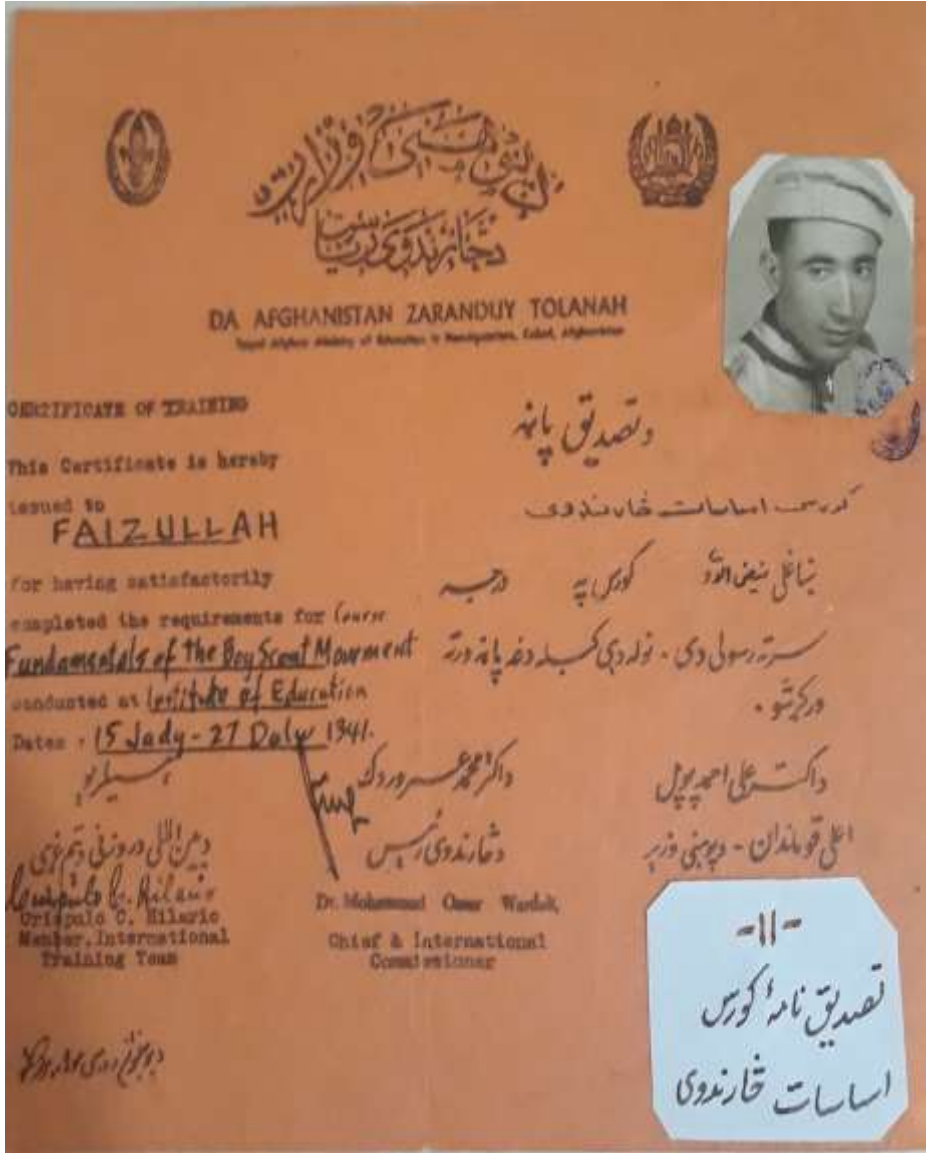 د پوهنی وزارت
د څارندوی ریاست
DA AFGHANISTAN ZARANDUY TOLANAH
Royal Afghan Ministry of Education Headquarters, Kabul, Afghanistan
CERTIFICATE OF TRAINING
This Certificate is hereby
issued to
FAIZULLAH
for having satisfactorily
completed the requirements for Course
Fundamentals of the Boy Scout Movement
conducted at Institute of Education
Dates: 15 Jady - 27 Dalw 1341.
د تصدیق پاڼه
کورس اساسات څارندوی
ښاغلی فیض الله د کورس په درجه
سرته رسولی دی . نوله دې کبله دغه پاڼه ورته
ورکړ شو .
داکتر علی احمد پوپل
اعلی قوماندان - د پوهنی وزیر
داکتر محمد عمر وردک
د څارندوی رئیس
Dr. Mohammad Omer Wardak,
Chief & International
Commissioner
د بین المللی د روزنی د ټیم غړی
Crispulo C. Hilario
Crispulo C. Hilario
Member, International
Training Team
-۱۱-
تصدیق نامۀ کورس
اساسات څارندوی